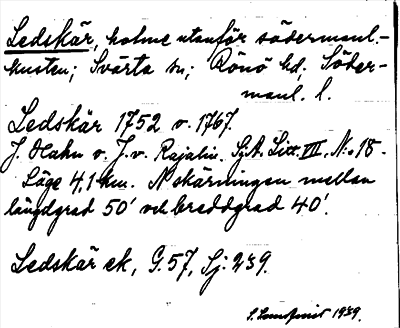 Ledskär, holme utanför södermanl.-
kusten; Svärta sn; Rönö hd, Söder-
manl. l.
Ledskär 1752 o. 1767.
J. Hahn o. J. v. Rajalin. SjA. Litt. VIII. No 18.
Läge 4,1 km. N skärningen mellan
längdgrad 50' och breddgrad 40'.
Ledskär ek, G. 57, Sj: 239.
1939.